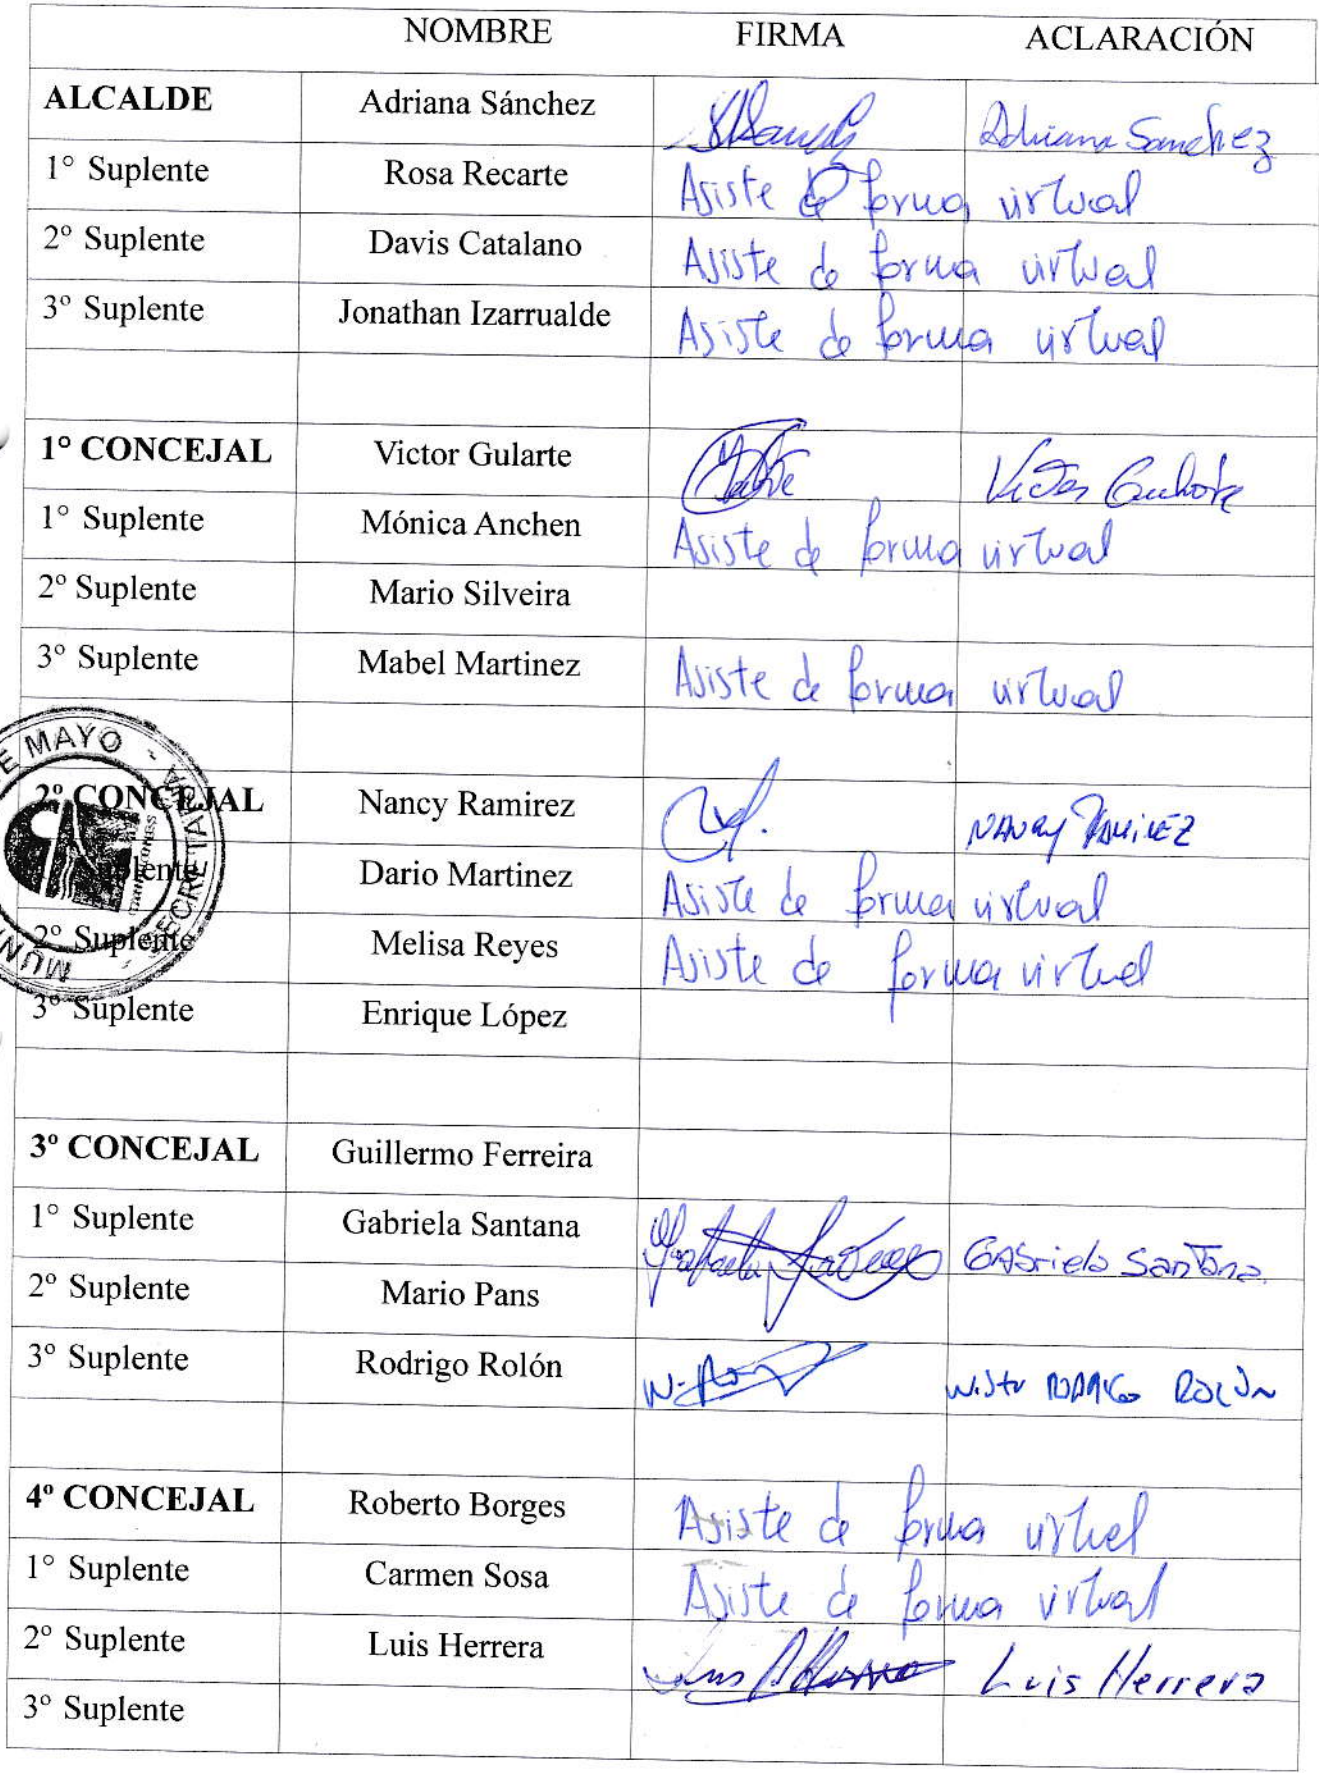 NOMBRE FIRMA ACLARACIÓN
ALCALDE Adriana Sánchez Adriana Sanchez
1° Suplente Rosa Recarte Asiste de forma virtual
2º Suplente Davis Catalano Asiste de forma virtual
3º Suplente Jonathan Izarrualde Asiste de forma virtual
1º CONCEJAL Victor Gularte Victor Gularte
1° Suplente Mónica Anchen Asiste de forma virtual
2º Suplente Mario Silveira
3º Suplente Mabel Martinez Asiste de forma virtual
E MAYO - SECRETARIA - MUNI
CANELONES
2º CONCEJAL Nancy Ramirez NANCY RAMIREZ
Suplente Dario Martinez Asiste de forma virtual
2º Suplente Melisa Reyes Asiste de forma virtual
3º Suplente Enrique López
3º CONCEJAL Guillermo Ferreira
1° Suplente Gabriela Santana Gabriela Santana
2º Suplente Mario Pans
3º Suplente Rodrigo Rolón RODRIGO ROLÓN
4º CONCEJAL Roberto Borges Asiste de forma virtual
1° Suplente Carmen Sosa Asiste de forma virtual
2º Suplente Luis Herrera Luis Herrera
3º Suplente